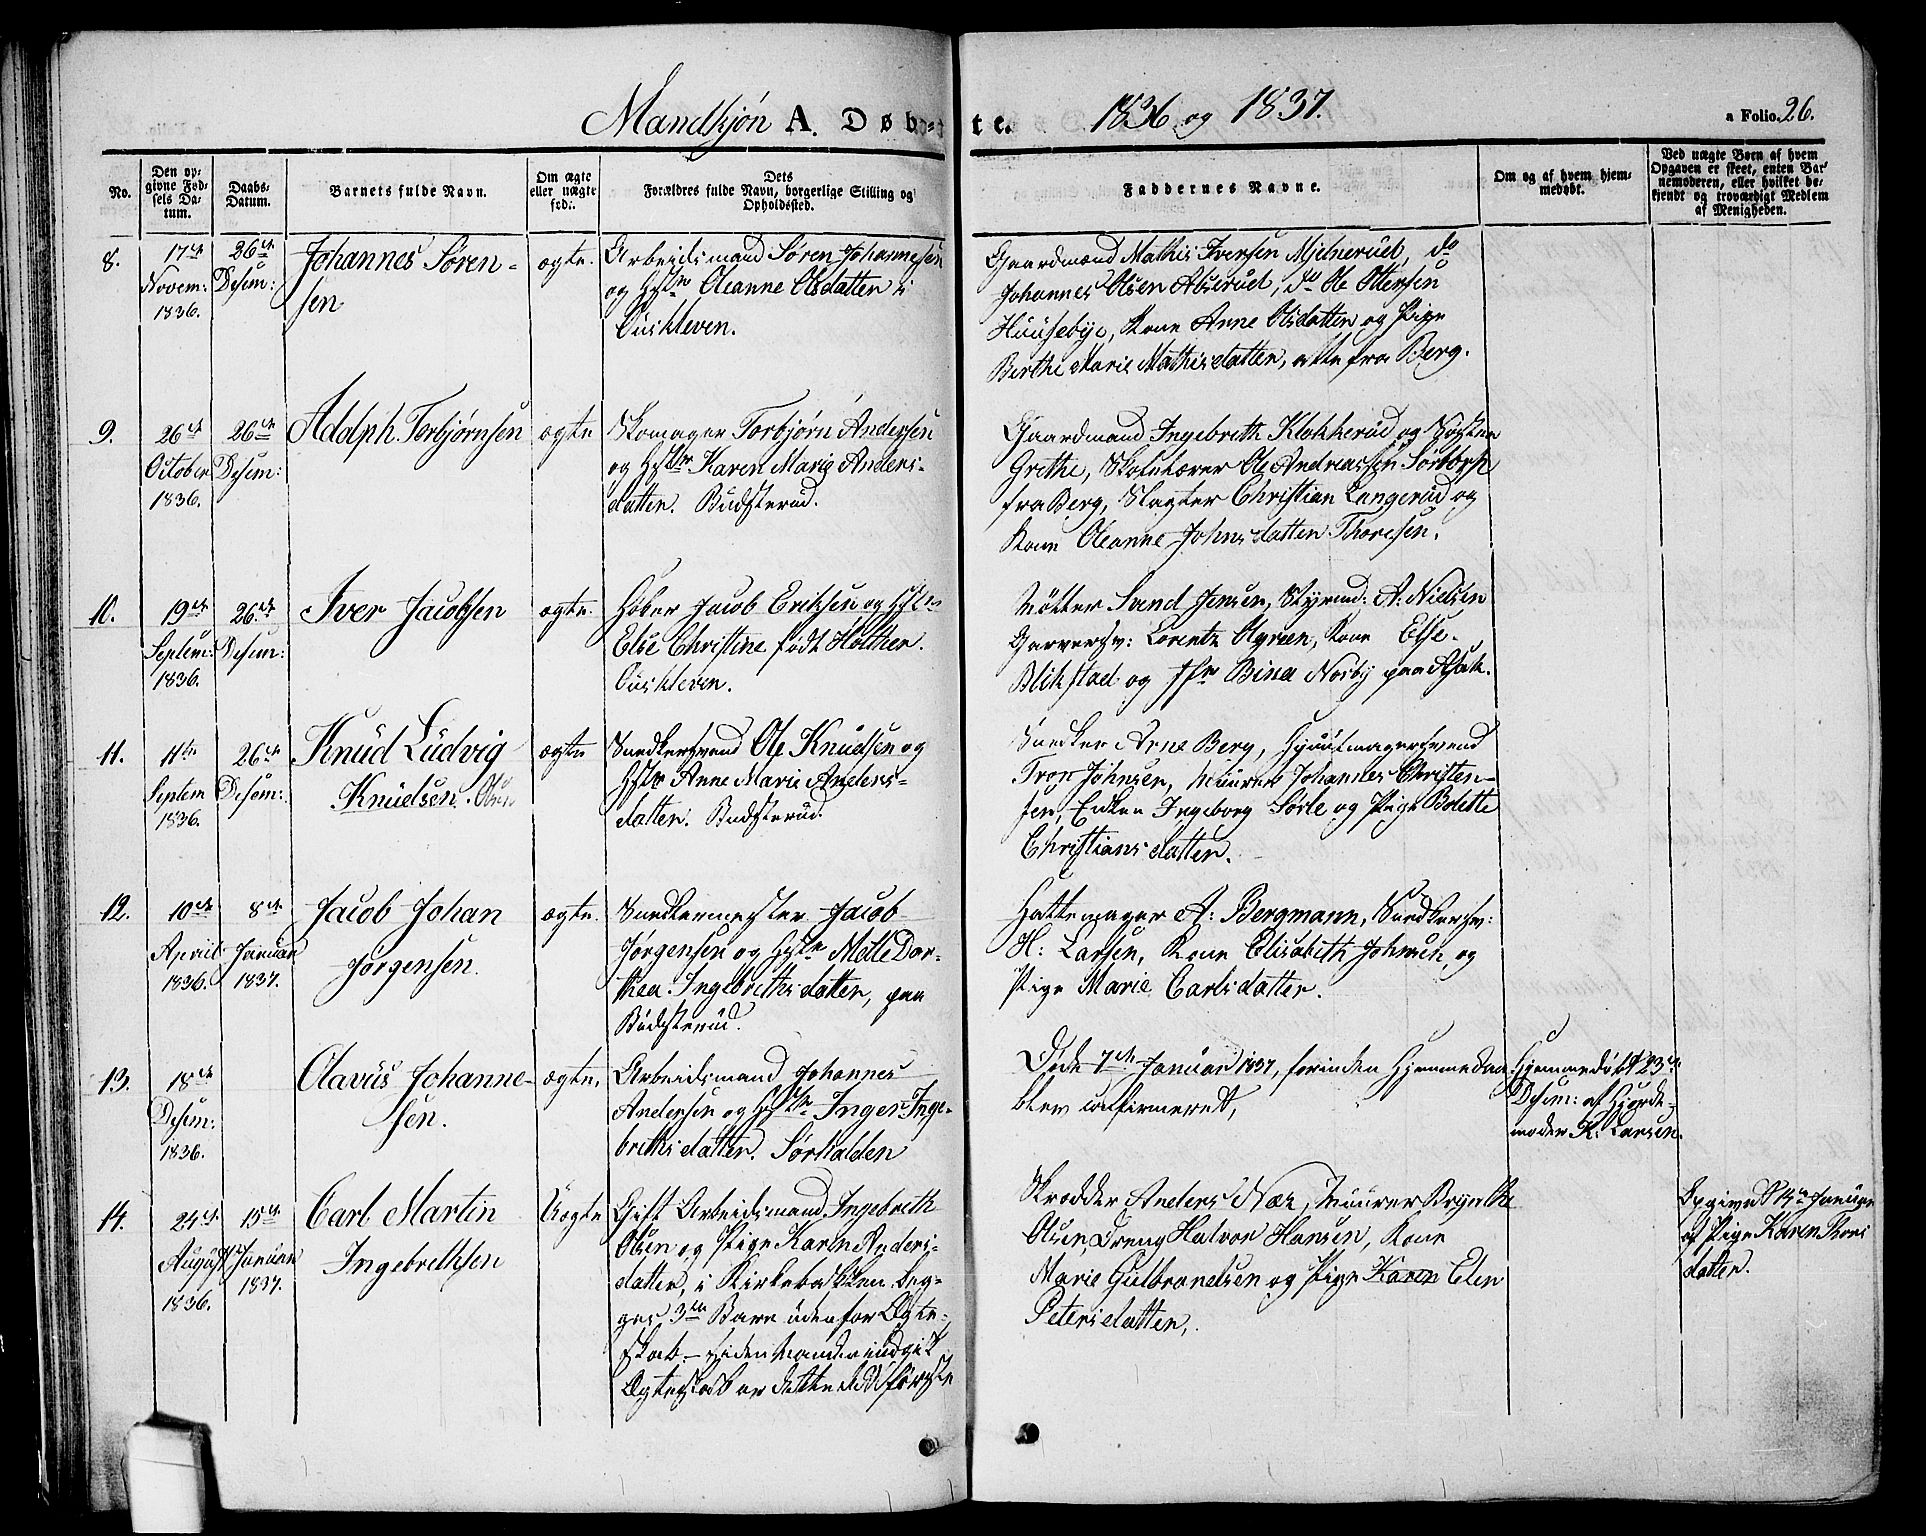 Mandkjøn A. Døbte. 1836 og 1837.
a Folio 26.
No.
Den opgivne Fødsels Datum.
Daabs-Datum.
Barnets fulde Navn.
Om ægte eller uægte fød:.
Dets Forældres fulde Navn, borgerlige Stilling og Opholdssted.
Faddernes Navne.
Om og af hvem hjemmedøbt.
Ved uægte Børn af hvem Opgaven er skeet, enten Barnemoderen, eller hvilket bekjendt og troværdigt Medlem af Menigheden.
8.
17de
Novem:
1836.
26de
Desem:
Johannes Søren-
sen
ægte.
Arbeidsmand Søren Johannesen
og Hstr Oleanne Olsdatter i
Ouskleven.
Gaardmænd Mathis Iversen Mjelnerud, do
Johannes Olsen Abserud, do Ole Ottersen
Huusebye, Kone Anne Olsdatter og Pige
Berthe Marie Mathisdatter, alle fra Berg.
9.
26de
October
1836.
26de
Desem:
Adolph Torbjørnsen
ægte
Skomager Torbjørn Andersen
og Hstr Karen Marie Anders-
datter. Budsterud.
Gaardmand Ingebreth Klokkerud og Søster
Grethe, Skolelærer Ole Andreassen
fra Berg, Slagter Christian Langerud og
Kone Oleanne Johnsdatter Thoresen.
10.
19de
Septem:
1836.
26de
Desem:
Iver Jacobsen
ægte.
Jacob Eriksen og Hstr
Else Christine født Holther.
Ouskleven.
Svend Jensen, Styrmd: A. Nielsen
Garversv: Lorentz Kone Else
Blikstad og Jfr Bina Norby paa
11.
11te
Septem
1836.
26de
Desem:
Knud Ludvig
Knudsen. Olsen
ægte
Snedkersvend Ole Knudsen og
Hstr Anne Marie Anders-
datter. Budsterud.
Snedker Arne Berg, Hjuulmagersvend
Tron Johnsen, Muurer Johannes Christen-
sen, Enken Ingeborg Sørle og Pige Bolette
Christiansdatter.
12.
10de
April
1836.
8de
Januar
1837.
Jacob Johan
Jørgensen.
ægte.
Snedkermester Jacob
Jørgensen og Hstr Mette Dor-
thea Ingebrethsdatter, paa
Budsterud.
Hattemager A: Bergmann, Snedkersv:
H: Larsen, Kone Elisabeth Johnsen og
Pige Marie Carlsdatter.
13.
18de
Desem:
1836.
Olavus Johanne-
sen.
ægte.
Arbeidsmand Johannes
Andersen og Hstr Inger Inge-
brethsdatter. Sørhalden
Døde 7de Januar 1837, forinden Hjemmedaaben
blev confirmeret,
Hjemmedøbt 23de
Desem: af Gjorde-
moder K: Larsen.
14.
24de
August
1836.
15de
Januar
1837.
Carl Martin
Ingebrethsen
Uægte
Gift Arbeidsmand Ingebreth
Olsen og Pige Karen Anders-
datter, i Kirkebakken. Beg-
ges 3die Barn udenfor Ægte-
skab. — Siden Manden indgik
Ægteskab er dette det første
Skrædder Anders Næs, Muurer Brynilde
Olsen, Dreng Halvor Hansen, Kone
Marie Gulbrandsen og Pige Karen Elen
Petersdatter.
Opgived 14de Januar
af Pige Karen Thors
datter.